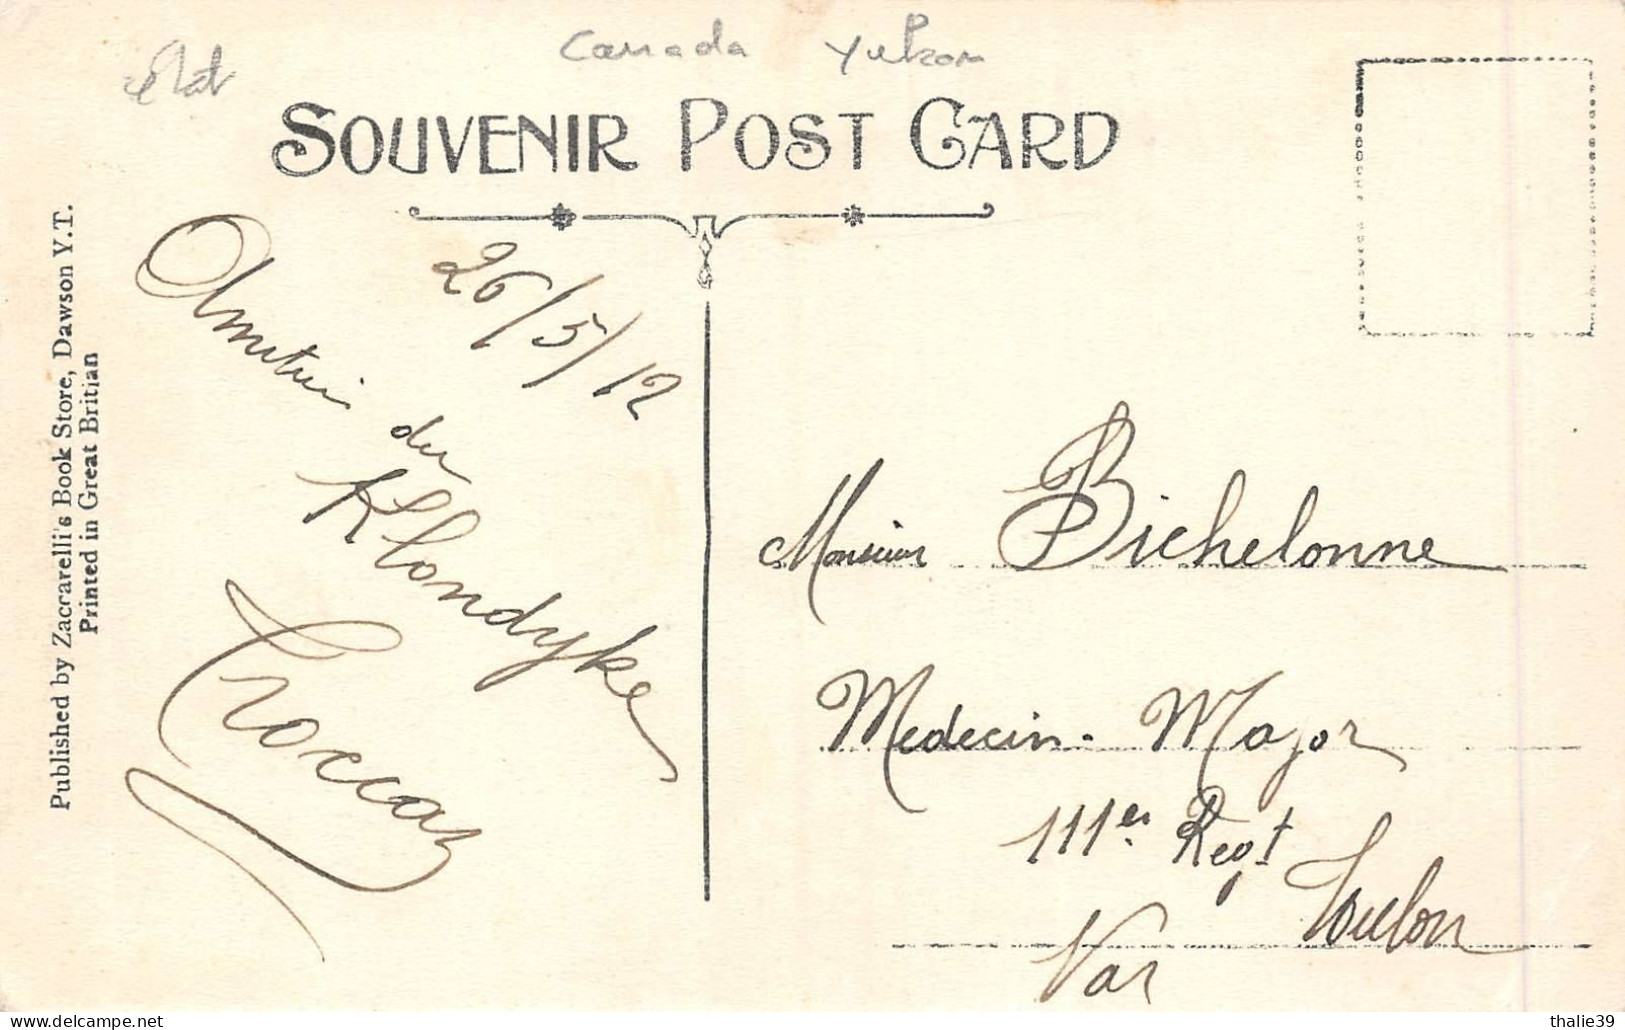 état
Canada Yukon
SOUVENIR POST CARD
Published by Zaccarelli's Book Store, Dawson Y.T.
Printed in Great Britian
26/5/12
du
Klondyke
Monsieur Bichelonne
Medecin-Major
111es Regt
Toulon
Var
thalie39
www.delcampe.net